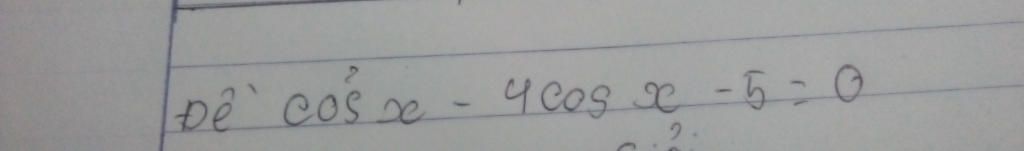 Đề cos²x - 4cos x - 5 = 0